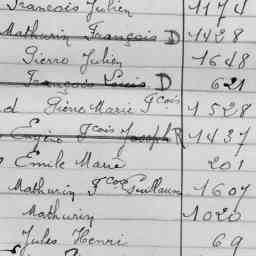 François Julien 1174
Mathurin François D 1428
Pierre Julien 1648
François Louis D 621
d Pierre Marie Fcois 1528
Eugène Fcois Joseph R 1437
Emile Marie 201
Mathurin Fcois Guillaume 1607
Mathurin 1020
Jules Henri 69